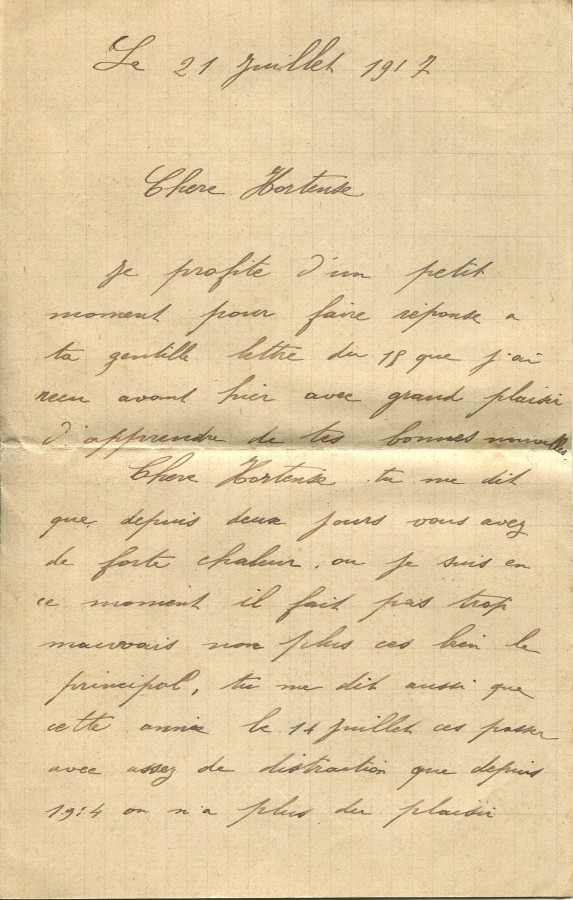 Le 21 Juillet 1917
Chere Hortense
Je profite d'un petit
moment pour faire réponse a
ta gentille lettre du 18 que j'ai
recu avant hier avec grand plaisir
d'apprendre de tes bonnes nouvelles.
Chere Hortense tu me dit
que depuis deux jours vous avez
de forte chaleur. ou je suis en
ce moment il fait pas trop
mauvais non plus ces bien le
principal, tu me dit aussi que
cette année le 14 Juillet ces passer
avec assez de distraction que depuis
1914 on n'a plus du plaisir